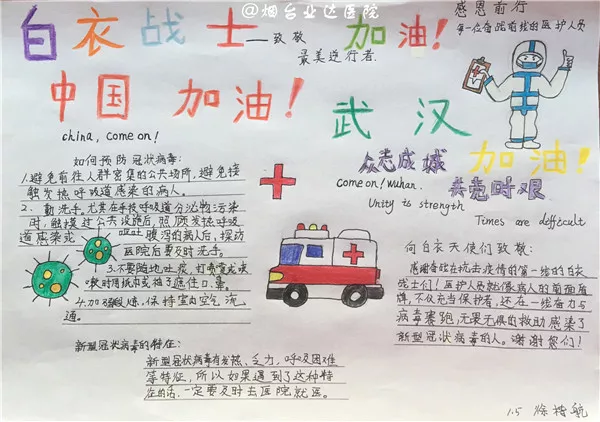 @烟台业达医院
白衣战士
—致敬
最美逆行者
加油!
感恩前行
每一位奋战前线的医护人员
中国 加油!
武汉
加油!
china, come on!
众志成城
come on! wuhan.
共克时艰
Unity is strength
Times are difficult
如何预防冠状病毒:
1.避免前往人群密集的公共场所,避免接
触发热呼吸道感染的病人。
2.勤洗手,尤其在手被呼吸道分泌物污染
时,触摸过公共设施后,照顾发热呼吸
道感染或 腹泻的病人后,探访
医院后要及时洗手。
3.不要随地吐痰,打喷嚏或咳
嗽时用纸巾或袖子遮住口、鼻。
4.加强锻炼,保持室内空气流
通。
向白衣天使们致敬:
感谢奋战在抗击疫情的第一线的白衣
战士们!医护人员就像病人的前面盾
牌,不仅充当保护者,还在一线奋力与
病毒赛跑,无畏无惧的救助感染了
新型冠状病毒的人。谢谢您们!
新型冠状病毒的特征:
新型冠状病毒有发热、乏力、呼吸困难
等特征,所以如果遇到了这种特
征的话,一定要及时去医院就医。
1.5 徐 毓